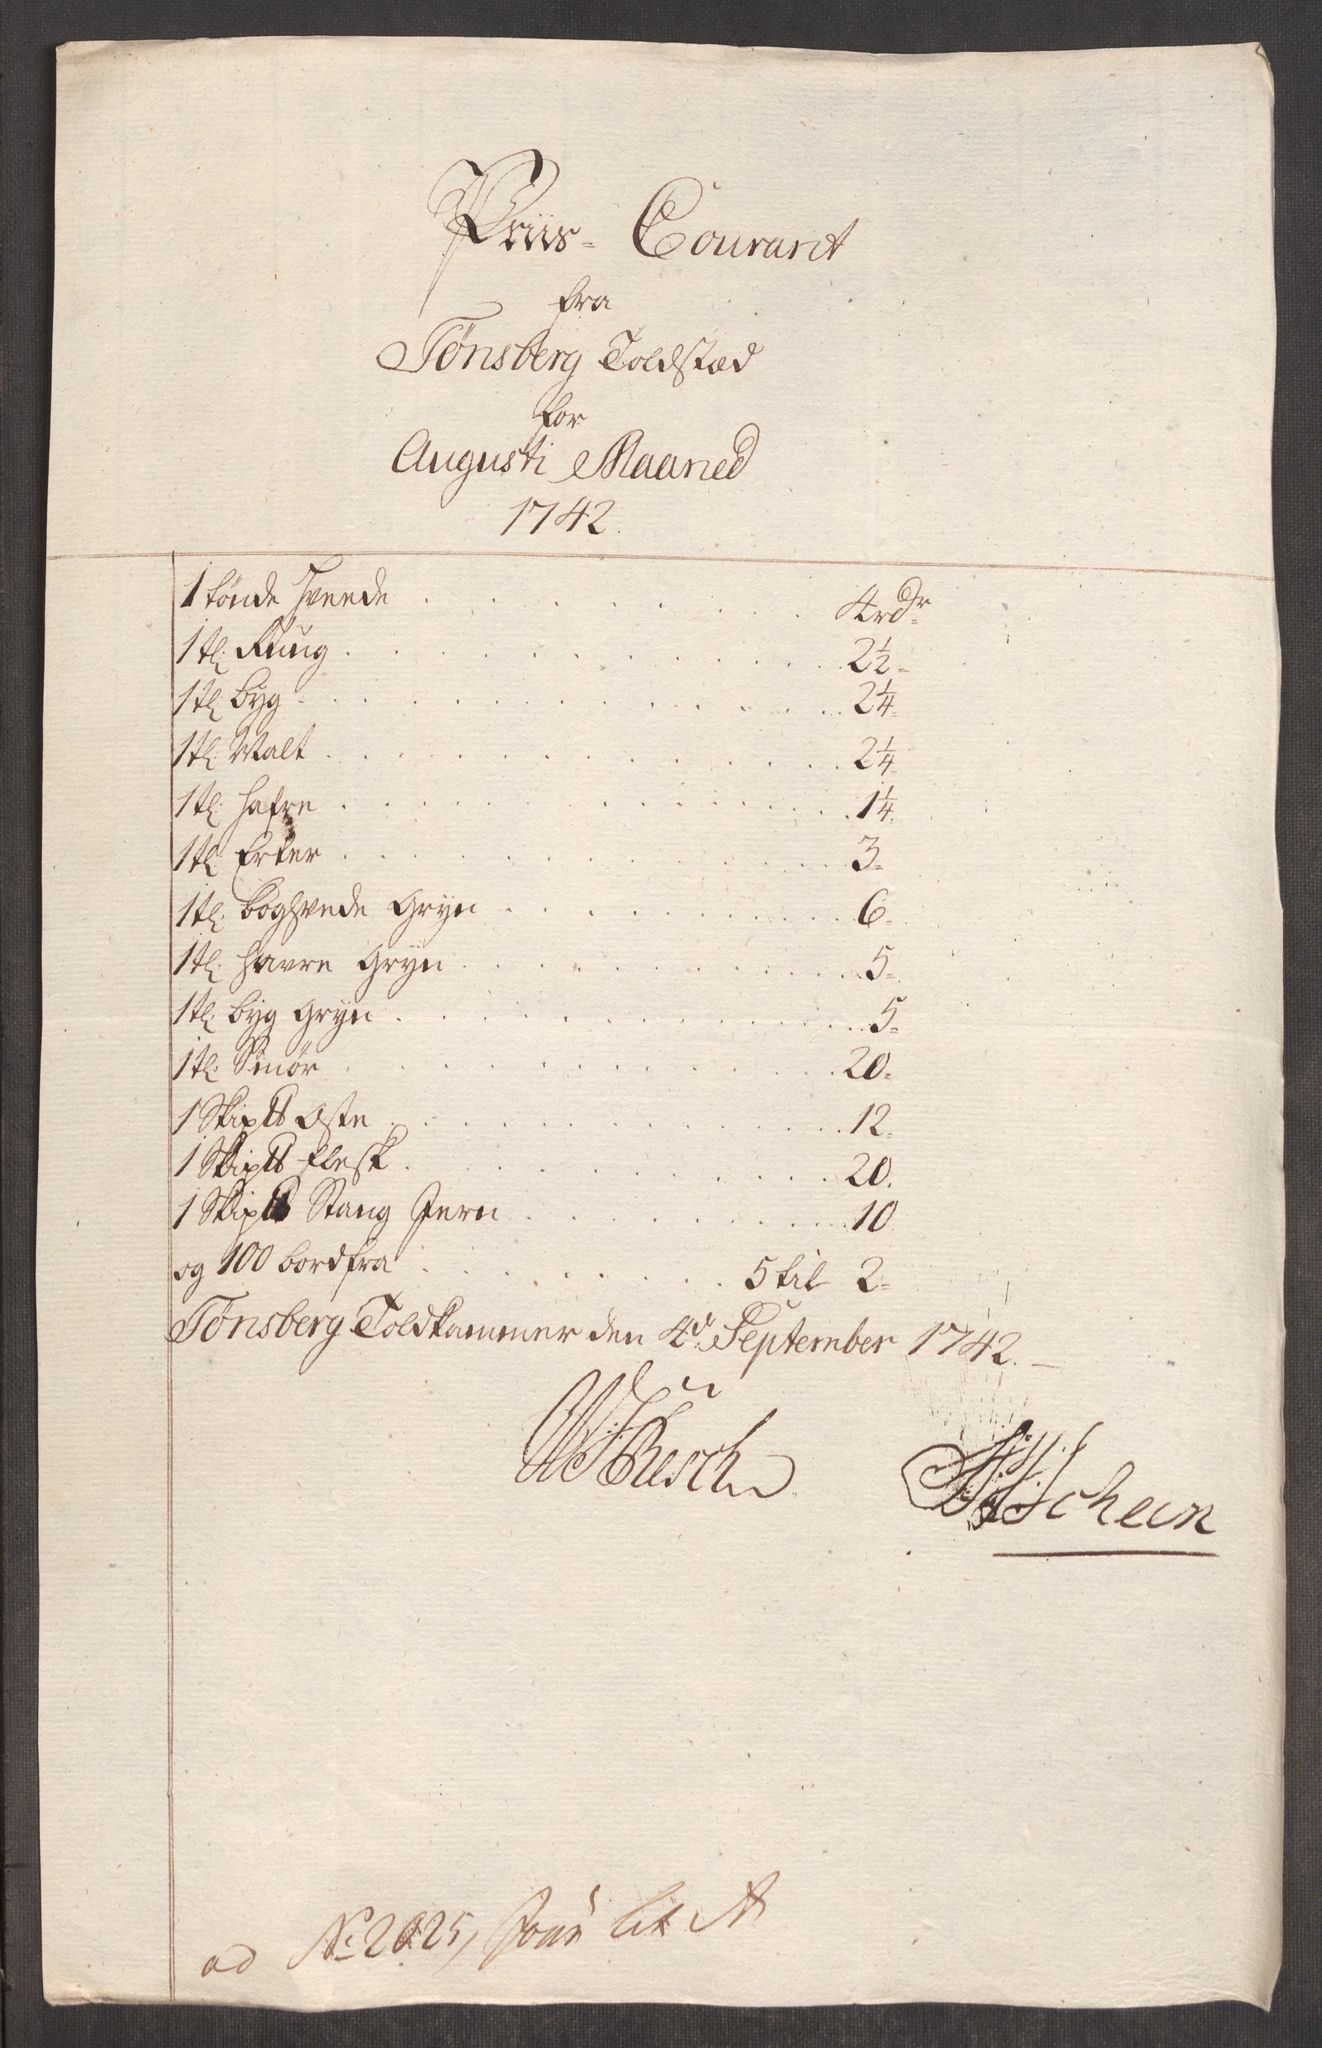 Priis- Courant
fra
Tønsberg Toldstæd
for
Augusti Maaned
1742.
1 tønde Hveede . . . . . . . . 4 rdr
1 tl: Rüug . . . . . . . . 2 1/2-
1 tl: byg . . . . . . . . 2 1/4-
1 tl: Malt . . . . . . . . 2 1/4-
1 tl: hafre . . . . . . . . 1 1/4-
1 tl: Erter . . . . . . . . 3-
1 tl: boghvede Gryn . . . . . . . . 6-
1 tl: Havre Gryn . . . . . . . . 5-
1 tl: byg Gryn . . . . . . . . 5-
1 tl: Smør . . . . . . . . 20-
1 Skip℔ Oste . . . . . . . . 12-
1 Skip℔ flesk . . . . . . . . 20.
1 Skip℔ Stang Jern . . . . . . . . 10
og 100 bord fra . . . . . . . . 5 til 2-
Tønsberg Toldkammer den 4d: September 1742.
Büsch Schein
ad No: 2025, Jour lit A